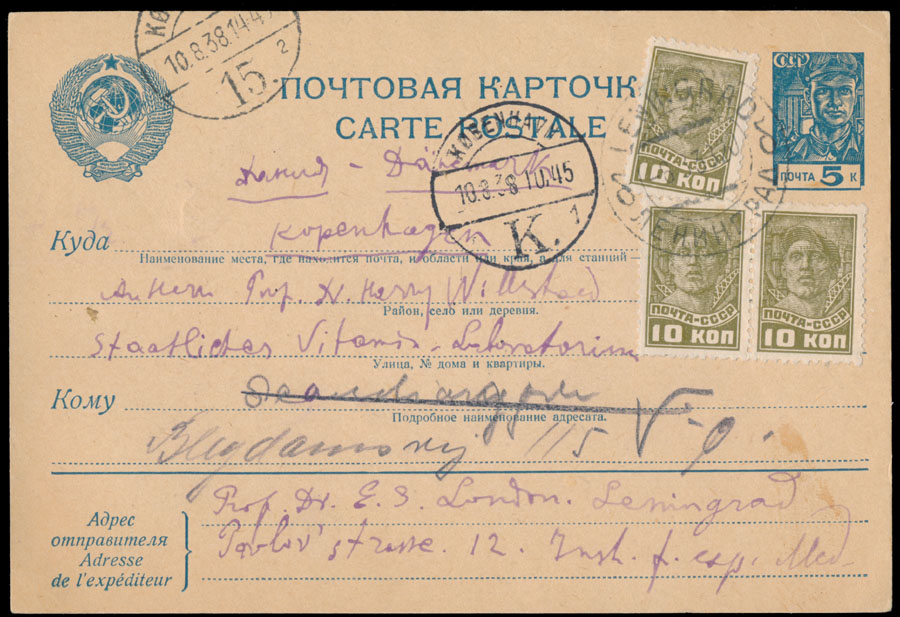 KØ
10.8.38.14-45
15. 2
ПОЧТОВАЯ КАРТОЧК
CARTE POSTALE
СССР
ПОЧТА 5 К
LENINGRAD
ЛЕНИНГРАД
ПОЧТА-СССР
10 КОП
ПОЧТА-СССР
10 КОП
ПОЧТА-СССР
10 КОП
KØBENHAVN
10.8.38 10.45
K. 1
Дания - Dänemark
Куда Kopenhagen
Наименование места, где находится почта, и области или края, а для станций —
An Herrn Prof. Dr. Harry Willstaed
Район, село или деревня.
Staatliches Vitamin-Laboratorium
Улица, № дома и квартиры.
Кому
Подробное наименование адресата.
Blegdamsvej 115
Prof. Dr. E. S. London. Leningrad
Pavlov'strasse. 12. Inst. f. exp. Med
Адрес
отправителя
Adresse
de l'expéditeur